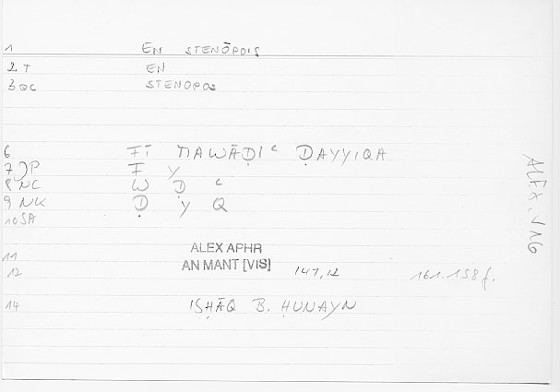 1 EN STENŌPOIS
2 T EN
3 QC STENOPOS
6 FĪ MAWĀḌIʿ ḌAYYIQA
7 JP F Y
8 NC W Ḍ ʿ
9 NK Ḍ Y Q
10 SA
11 ALEX APHR
AN MANT [VIS]
12 147,12 161.158 f.
14 ISḤĀQ B. ḤUNAYN
ALEX. AN